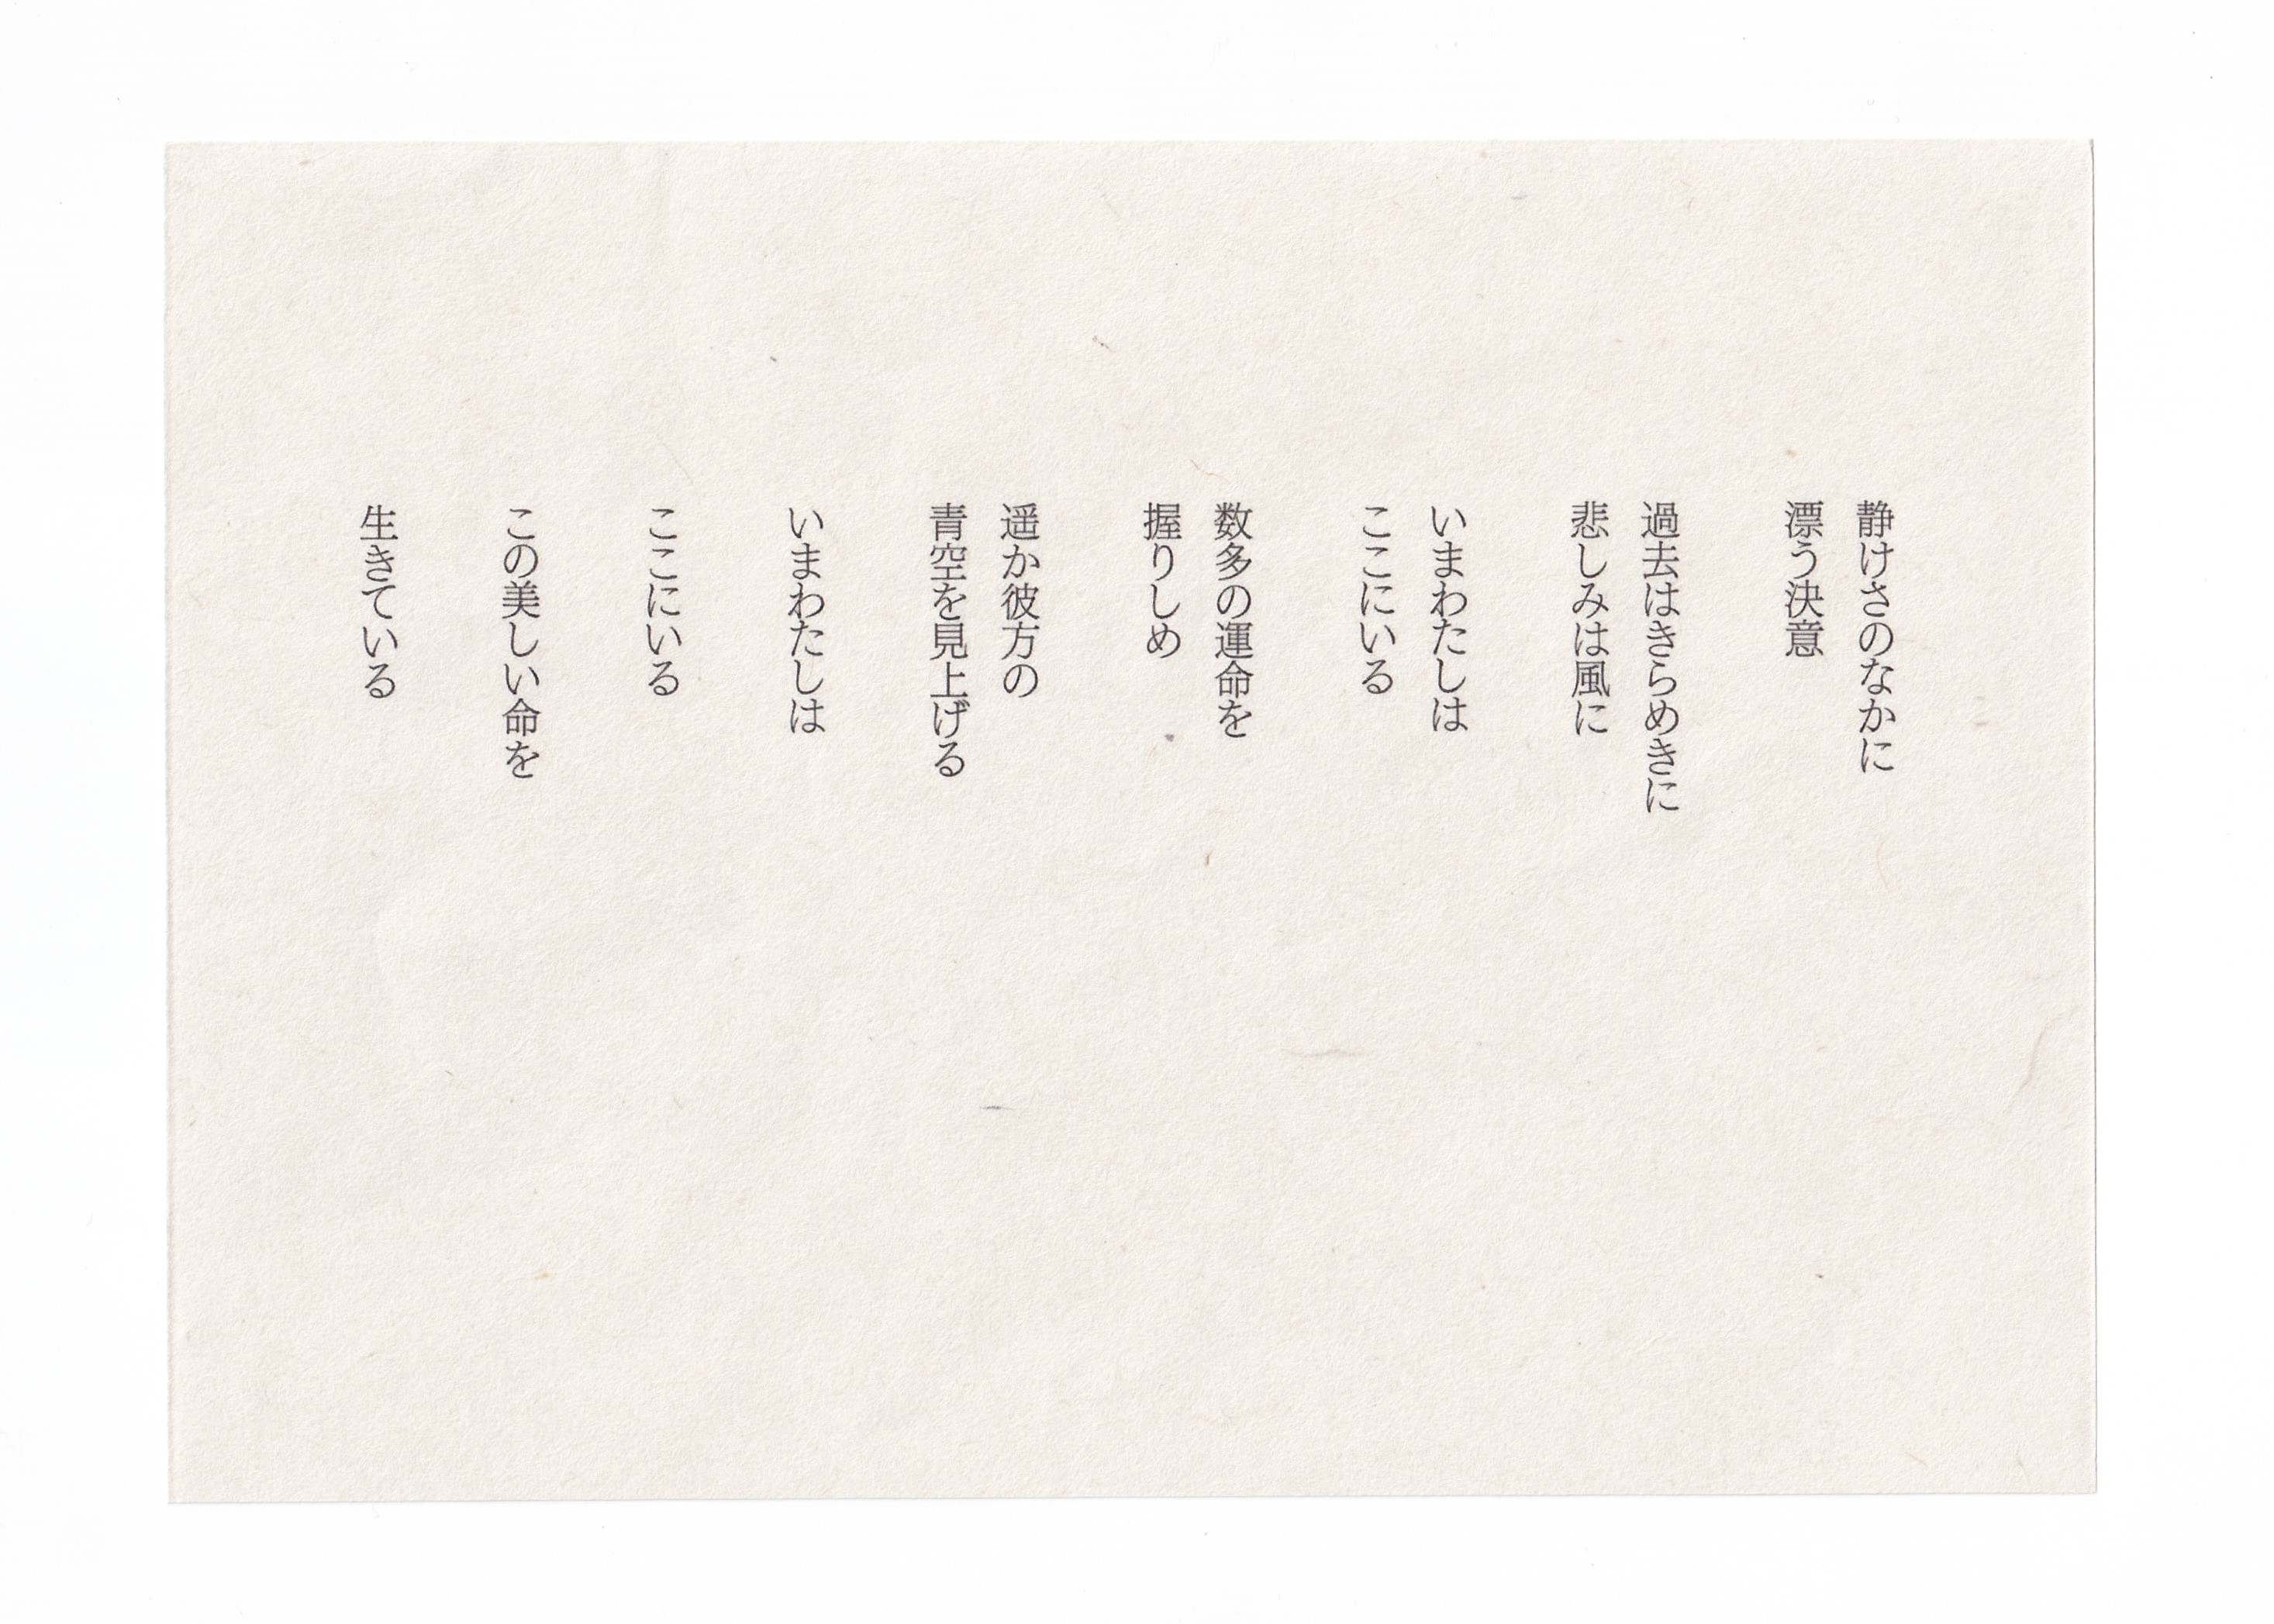 静けさのなかに
漂う決意
過去はきらめきに
悲しみは風に
いまわたしは
ここにいる
数多の運命を
握りしめ
遥か彼方の
青空を見上げる
いまわたしは
ここにいる
この美しい命を
生きている